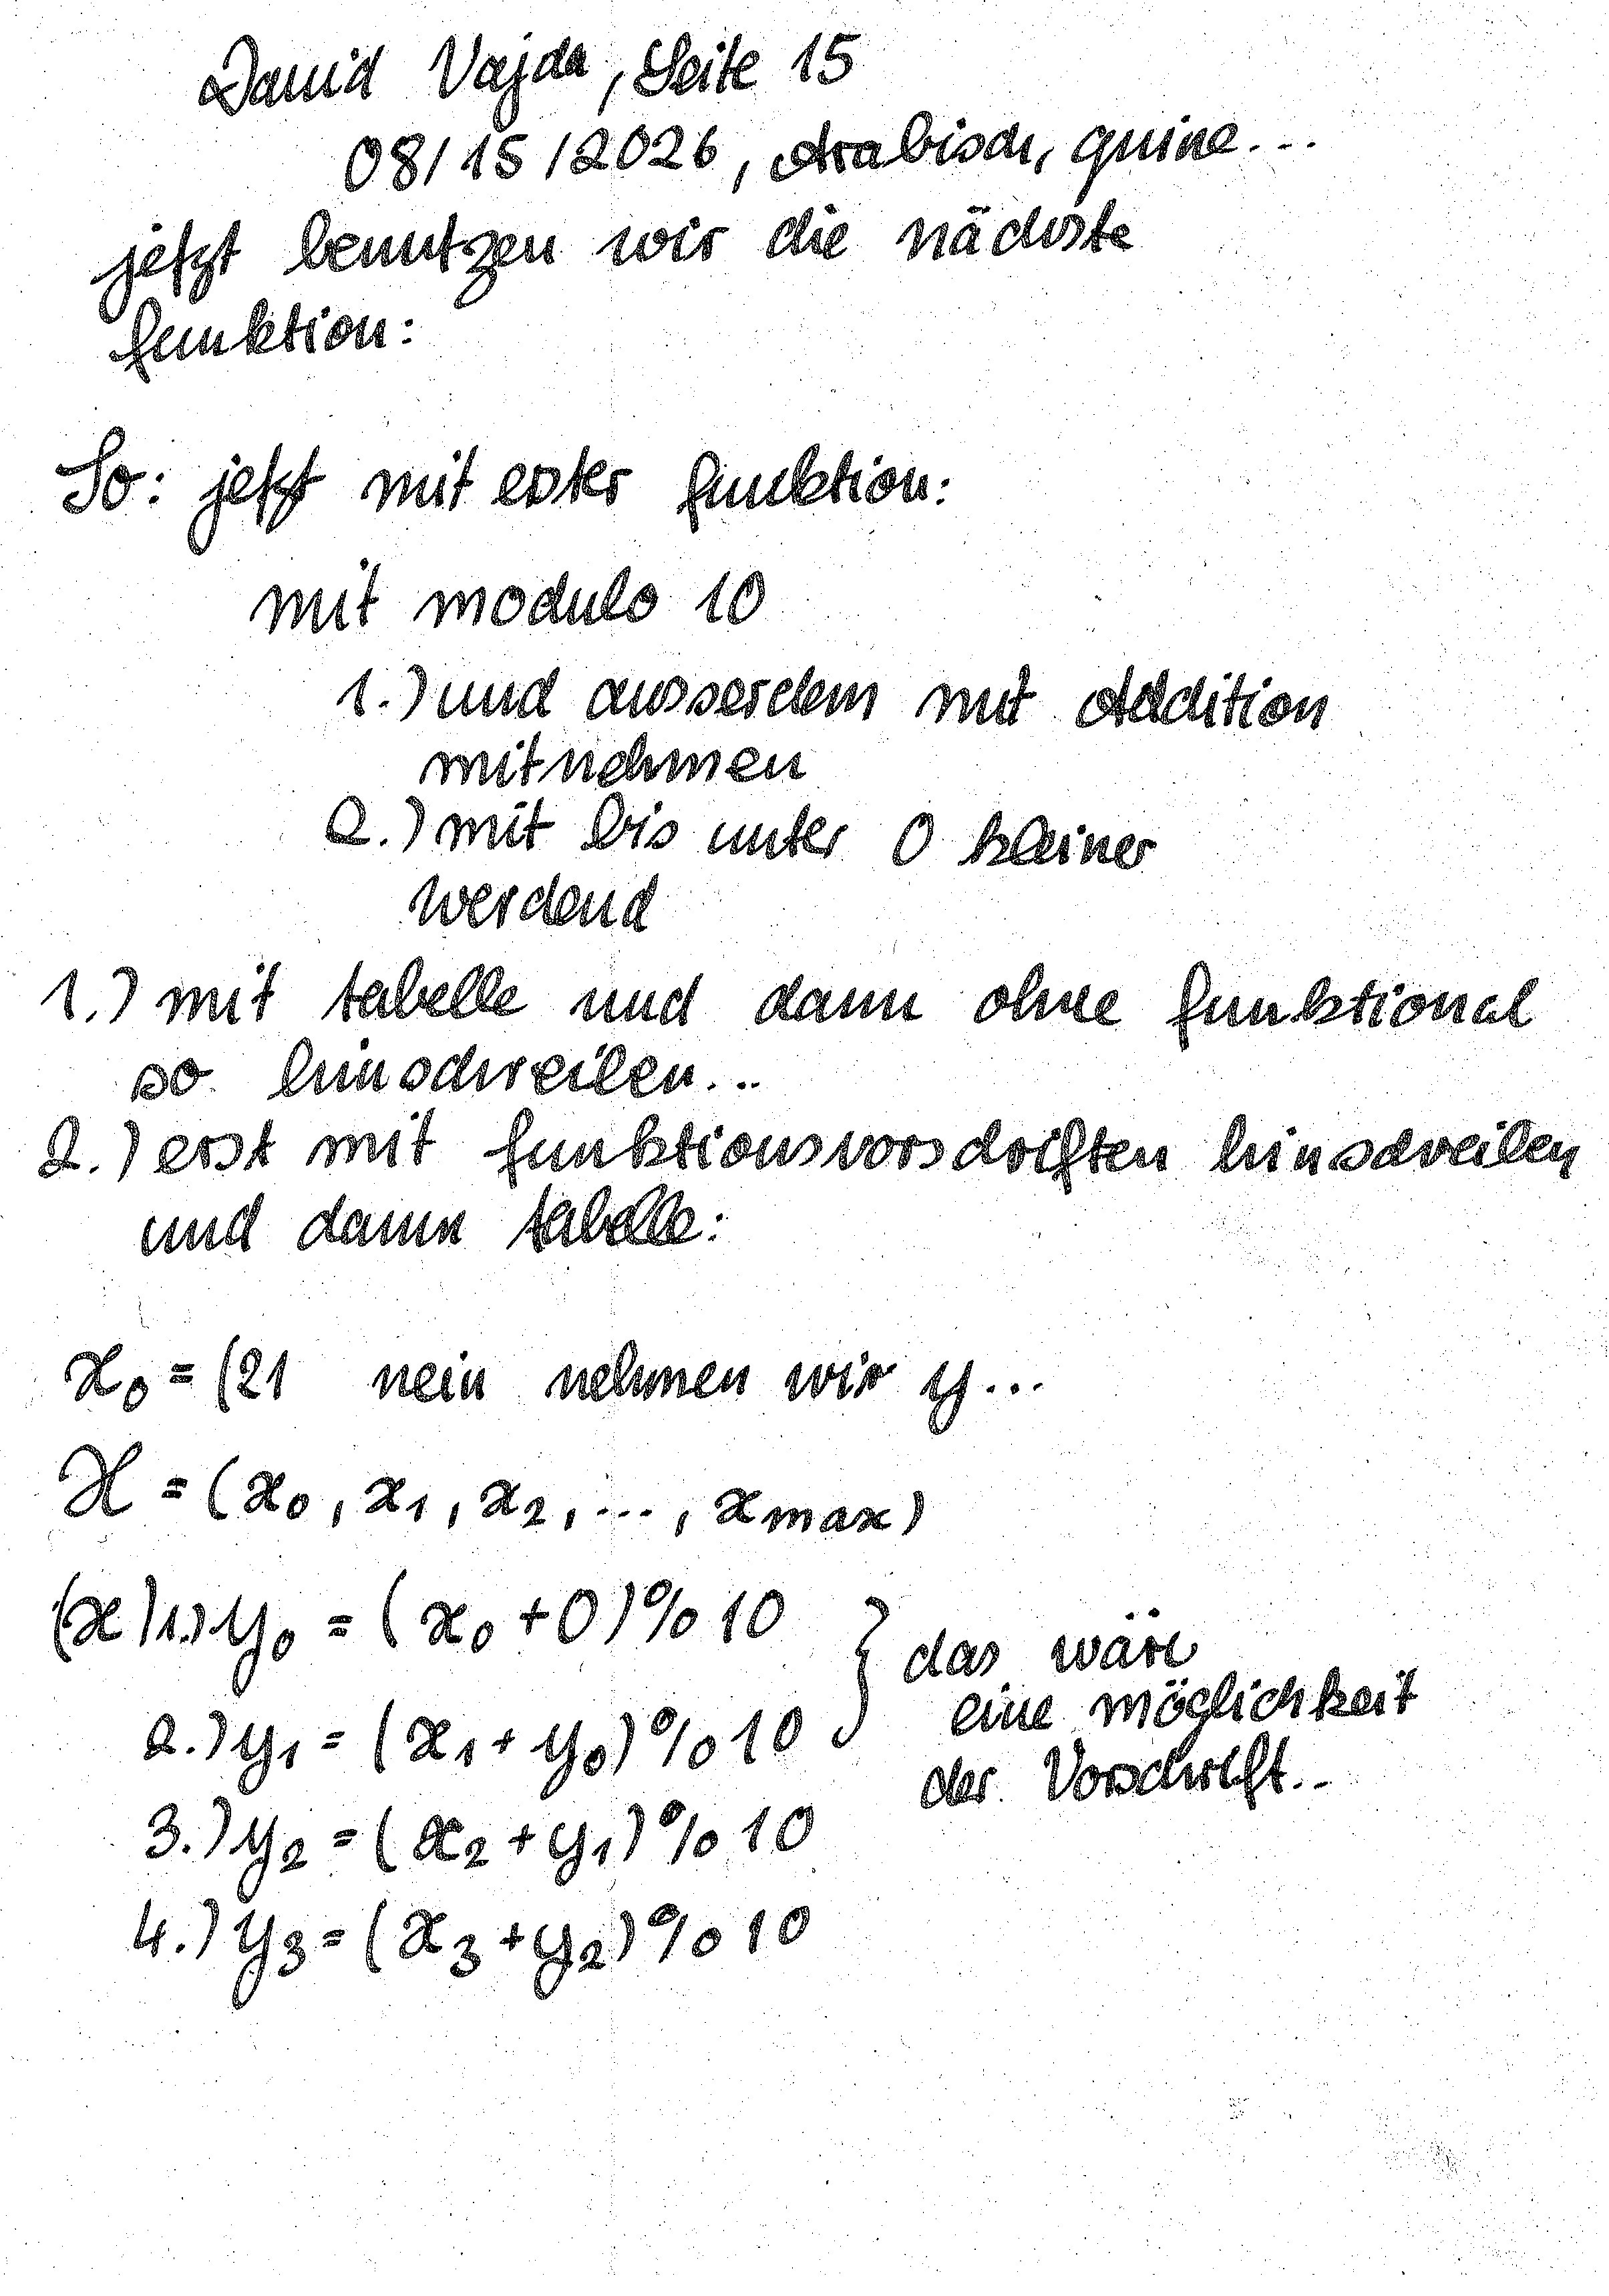 David Vajda, Seite 15
08/15/2026, Arabisch, quine...
jetzt benutzen wir die nächste
funktion:
So: jetzt mit erster funktion:
mit modulo 10
1.) und ausserdem mit Addition
mitnehmen
2.) mit bis unter 0 kleiner
werdend
1.) mit tabelle und dann ohne funktional
so hinschreiben...
2.) erst mit funktionsvorschriften hinschreiben
und dann tabelle:
x₀ = (21 nein nehmen wir y...
X = (x₀, x₁, x₂, ..., xmax)
(x)1.) y₀ = (x₀ + 0) % 10
2.) y₁ = (x₁ + y₀) % 10
} das wäre
eine möglichkeit
der Vorschrift...
3.) y₂ = (x₂ + y₁) % 10
4.) y₃ = (x₃ + y₂) % 10